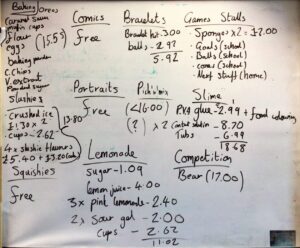 Baking Oreos
Caramel Sum
Cake cups
flour
eggs
(15.55)
baking powder
C. Chips
V extract
Powdered sugar
Slushies
crushed ice
£1.30 x 2
cups - 2.62
13.80
4 x slushie flavours
£5.40 + £3.20
Squishies
free
Comics
free
Bracelets
Bracelet kit - 3.00
balls - 2.92
5.92
Games Stalls
Sponges x2 = £2.00
Goals (school)
Balls (school)
cones (school)
Nerf stuff (home)
Portraits
free
Pick'n'mix
(<16.00)
(?) x2
Slime
P.V.A glue - 2.99 + food colouring
Contact solution - 8.70
Tubs - 6.99
18.68
Lemonade
Sugar - 1.09
lemon juice - 4.00
3 x pink lemonade - 2.40
2 x sour gal - 2.00
cups - 2.62
11.02
Competition
Bear (17.00)